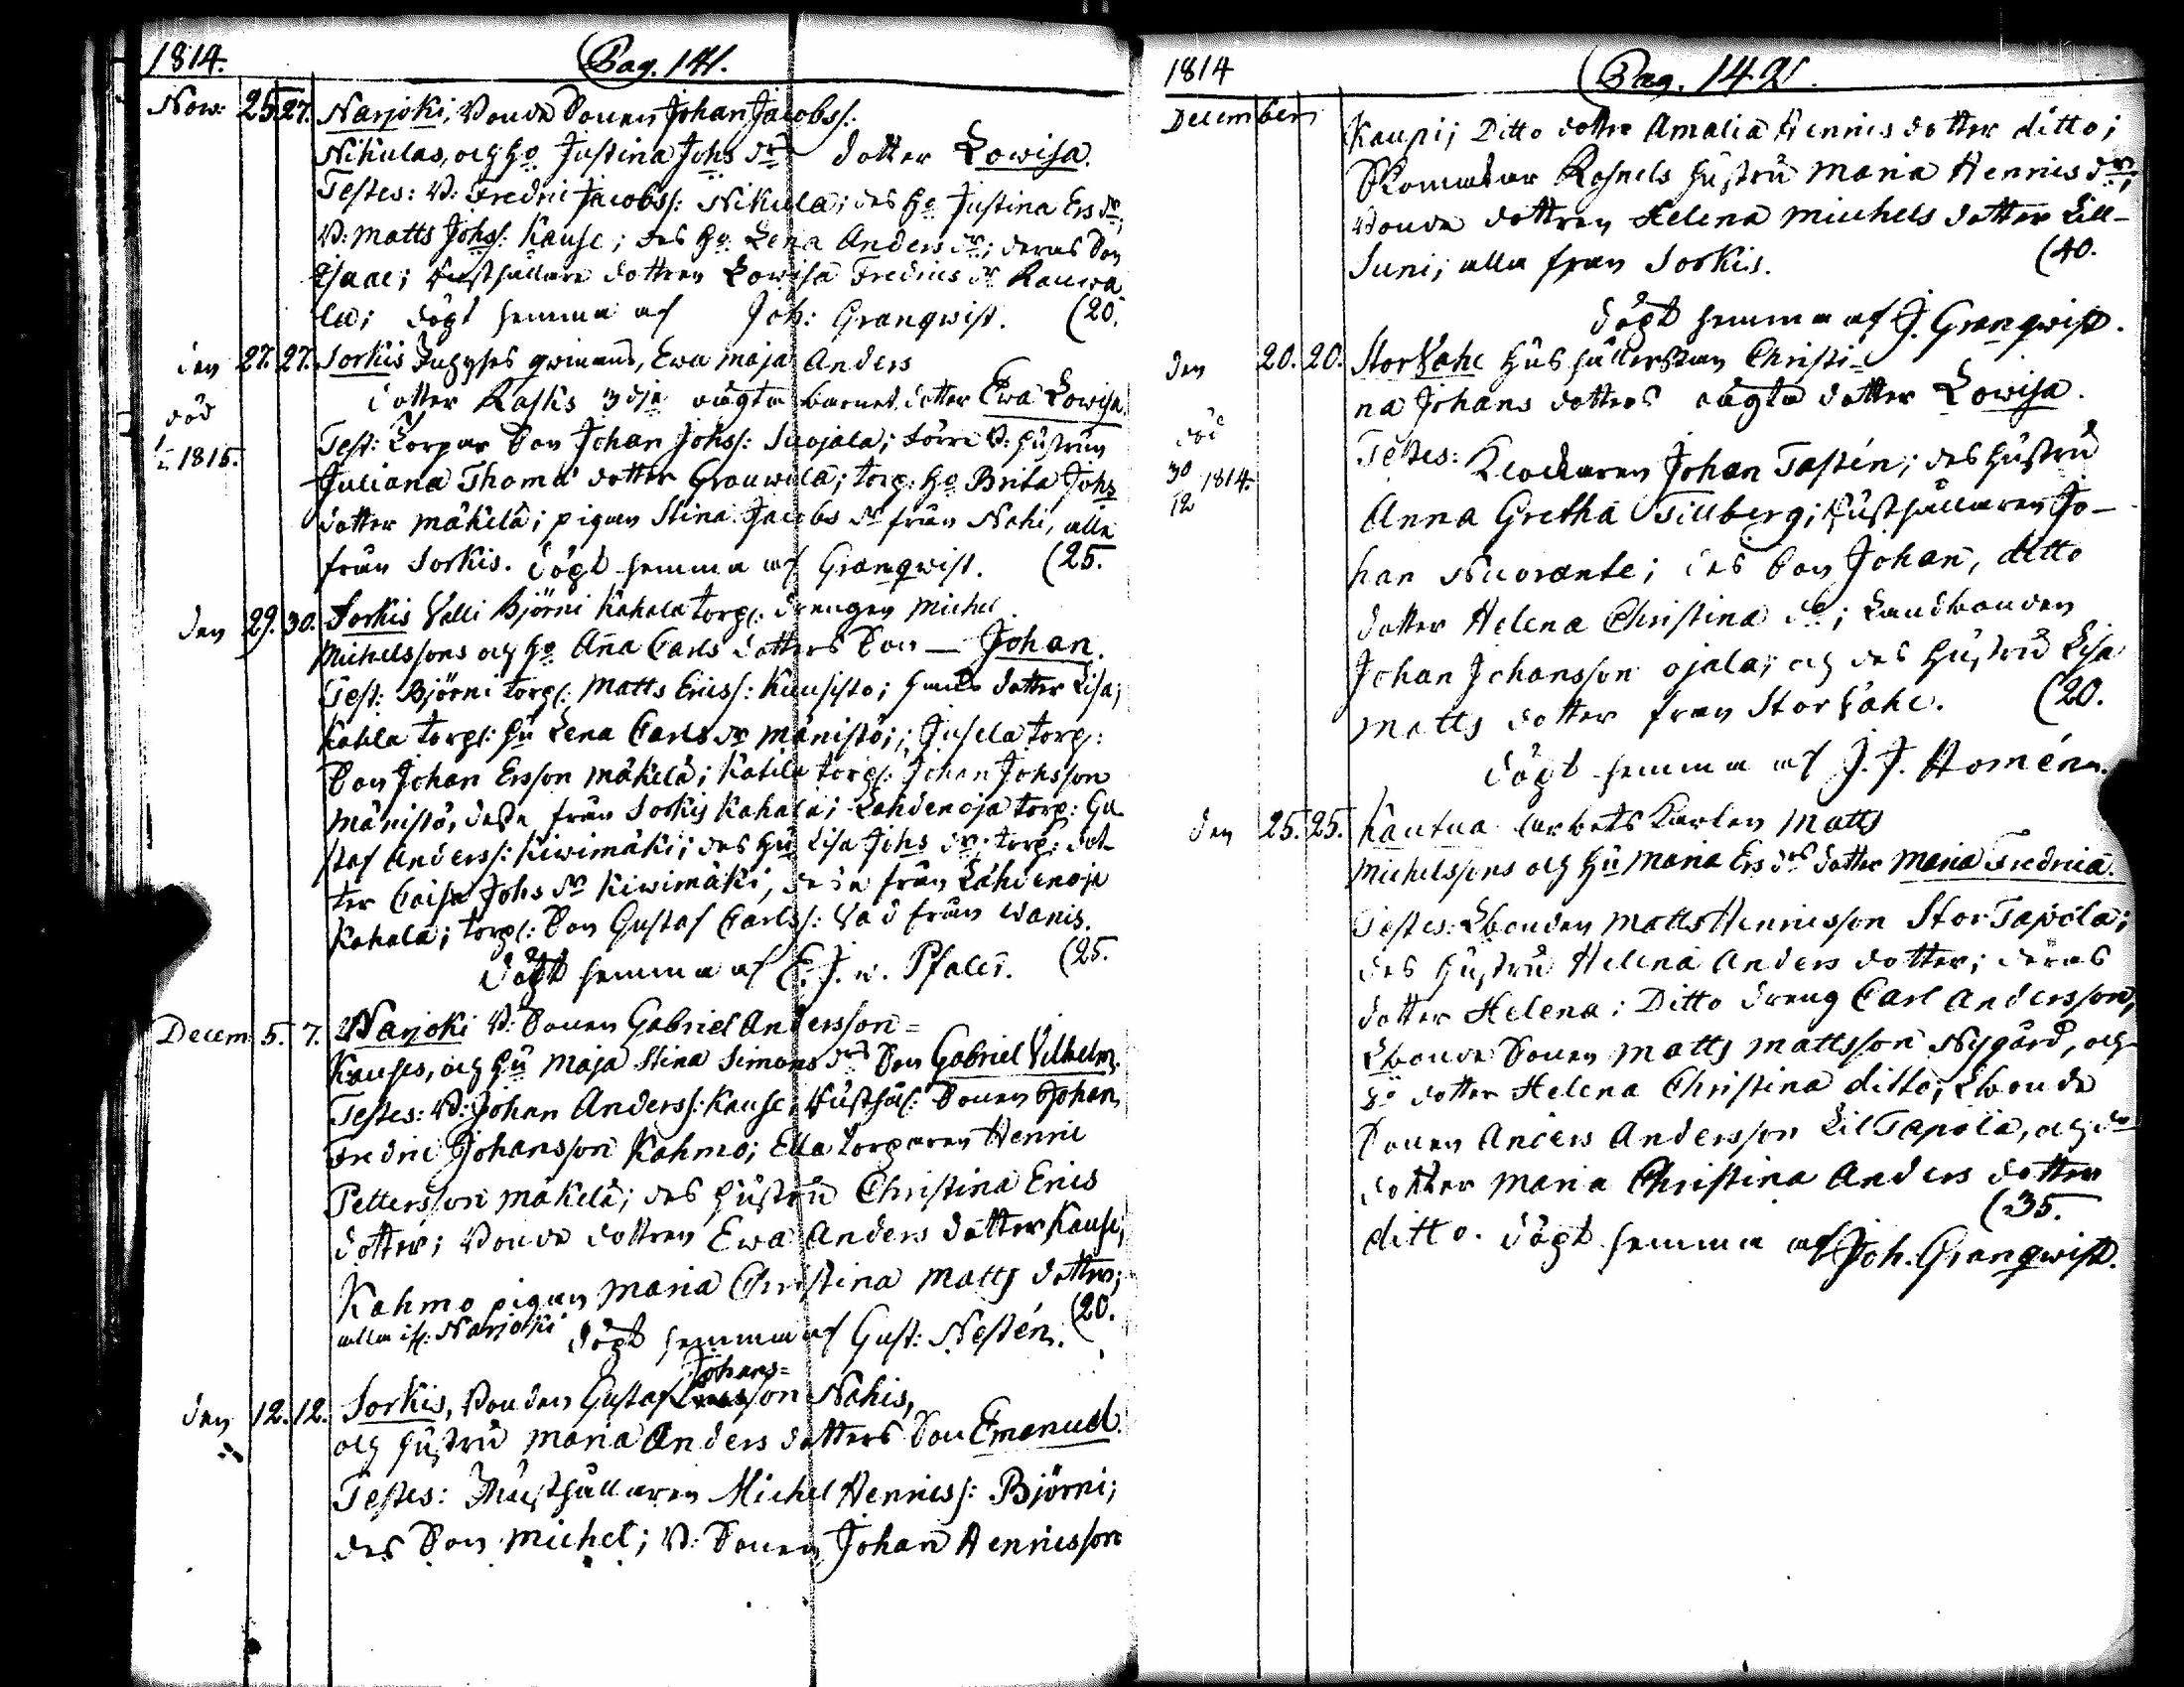 1814.
Pag. 141.
Nov: 25. 27. Narjoki, Bonde Sonen Johan Jacobss:
Nikulas, och Ho Justina Johs dr dotter Lowisa.
Testes: B: Fredric Jacobss: Nikula; des Ho Justina Ers dr;
B: Matts Johss: Kause; des Ho Lena Anders dr; deras Son
Isaac; Rusthållare dottren Lowisa Fredrics dr Rauwa
la; döpt hemma af Joh: Granqwist. (20.
den 27. 27. Sorkis Inhyses qwinnans, Ewa Maja Anders
dotter Rasks 3dje oägta barnet dotter Ewa Lowisa.
död
1815.
Test: Torpar Son Johan Johss: Suojala; B: hustrun
Juliana Thomæ dotter Grouwila; torp: Ho Brita Johs
dotter Mäkelä; pigan Stina Jacobs dr från Nahi, alla
från Sorkis. döpt hemma af Granqwist. (25.
den 29. 30. Sorkis Välli Björni Kahala torp: drengen Michel
Michelssons och Ho Anna Carls dotters Son — Johan.
Test: Björni torp: Matts Ericss: Kuusisto; hans dotter Lisa;
Kahla torp: Hu Lena Carls dr Mänistö; Jusela torp:
Son Johan Ersson Mäkelä; Kahila torp: Johan Johsson
Mänistö, desse från Sorkis Kahala; Lähdenoja torp: Gu
staf Anderss: Kiwimäki; des Hu Lisa Johs dr; torp: dot
ter Caisa Johs dr Kiwimäki, desse från Lähdenoja
Kahala; torp: Son Gustaf Carlss: från Wanis.
döpt hemma af E. J. v. Pfaler. (25.
Decem 5. 7. Narjoki B: Sonen Gabriel Andersson=
Kauses, och Hu Maja Stina Simons drs Son Gabriel Vilhelm.
Testes: B: Johan Anderss: Kause, Rusthål: Sonen Johan
Fredric Johansson Kahmo; Ella torparen Henric
Pettersson Mäkelä; des Hustru Christina Erics
dotter; Bonde dottren Ewa Anders dotter Kause;
Kahmo pigan Maria Christina Matts dotter;
alla if: Narjoki döpt hemma af Gust: Nestén. (20.
Johans=
den 12. 12. Sorkis, Bonden Gustaf sson Nahis,
och hustru Maria Anders dotters Son Emanuel.
Testes: Rusthållaren Michel Henricss: Björni;
des Son Michel; B: Sonen Johan Henricsson
1814
Pag. 142.
December
Kaupi; Ditto dotter Amalia Henrics dotter ditto;
Skomakar Rosnels hustru Maria Henrics dr;
Bonde dottren Helena Michels dotter Lill-
Suni; alla fran Sorkis. (40.
döpt hemma af J. Granqwist.
den 20. 20. Storvahe Hushållerskan Christi-
na Johans dotters oägta dotter Lowisa.
död
30
12 1814.
Testes: Klockaren Johan Tastén; des hustru
Anna Gretha Tillberg; Rusthållaren Jo-
han Nuorante; des Son Johan, ditto
dotter Helena Christina do; Landbonden
Johan Johansson Ojala; och des hustru Lisa
Matts dotter fran Storvahe. (20.
döpt hemma af J. J. Homén.
den 25. 25. Kautua arbets Karlen Matts
Michelssons och Hu Maria Ers drs dotter Maria Fredrica.
Testes: Lbonden Matts Henricsson Stor Tapola;
des hustru Helena Anders dotter; deras
dotter Helena; Ditto dreng Carl Andersson,
Lbonde Sonen Matts Mattsson Nygård, och
do dotter Helena Christina ditto; Lbonde
Sonen Anders Andersson Lil Tapola, och do
dotter Maria Christina Anders dotter
ditto. döpt hemma af Joh. Granqwist. (35.